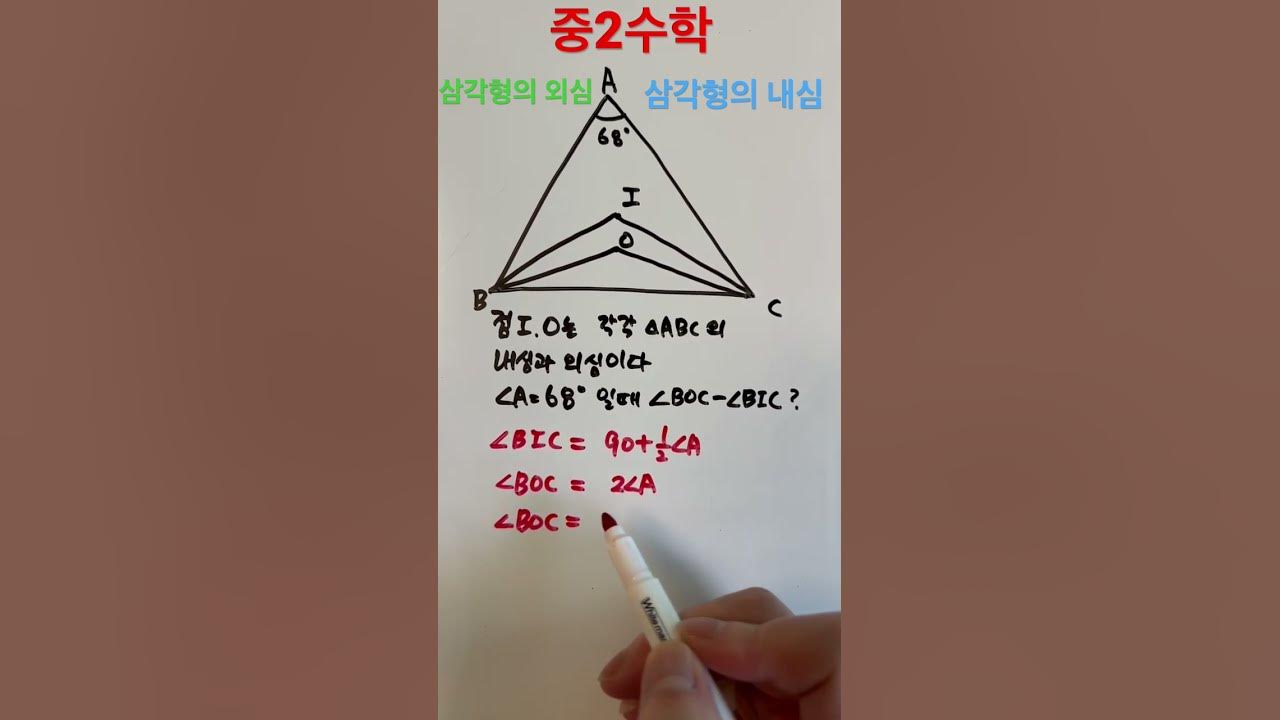 중2수학
삼각형의 외심
삼각형의 내심
A
68°
I
O
B
C
점I,O는 각각 △ABC의
내심과 외심이다
∠A=68° 일때 ∠BOC-∠BIC?
∠BIC= 90+½∠A
∠BOC = 2∠A
∠BOC=
White mar